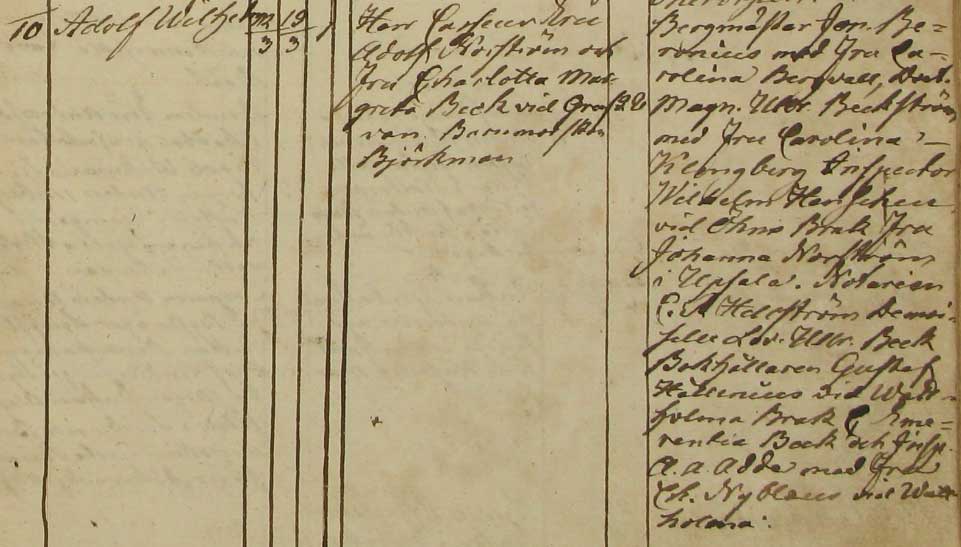 10 Adolf Wilhelm 12/3 19/3
Herr Casseur Eric
Adolf Norström och
Fru Charlotta Mar-
greta Beck vid Gruf 32
van. Barnmorskan
Björkman
Bergmästar Jon. Be-
ronius med Fru Ca-
rolina Bergvall,
Magn. Ulr. Beckström
med Fru Carolina
Klingberg Inspector
Wilhelm
vid Bruk Fru
Johanna Norström
i Upsala. Notarien
C. Hallström Demoi-
selle Lov. Ulr. Beck
Bokhållaren Gustaf
Hallenius vid Watt-
holma Bruk Eme-
rentia Beck och Insp.
A. A. med Fru
Ch. Nyblæus vid Watt
holma.